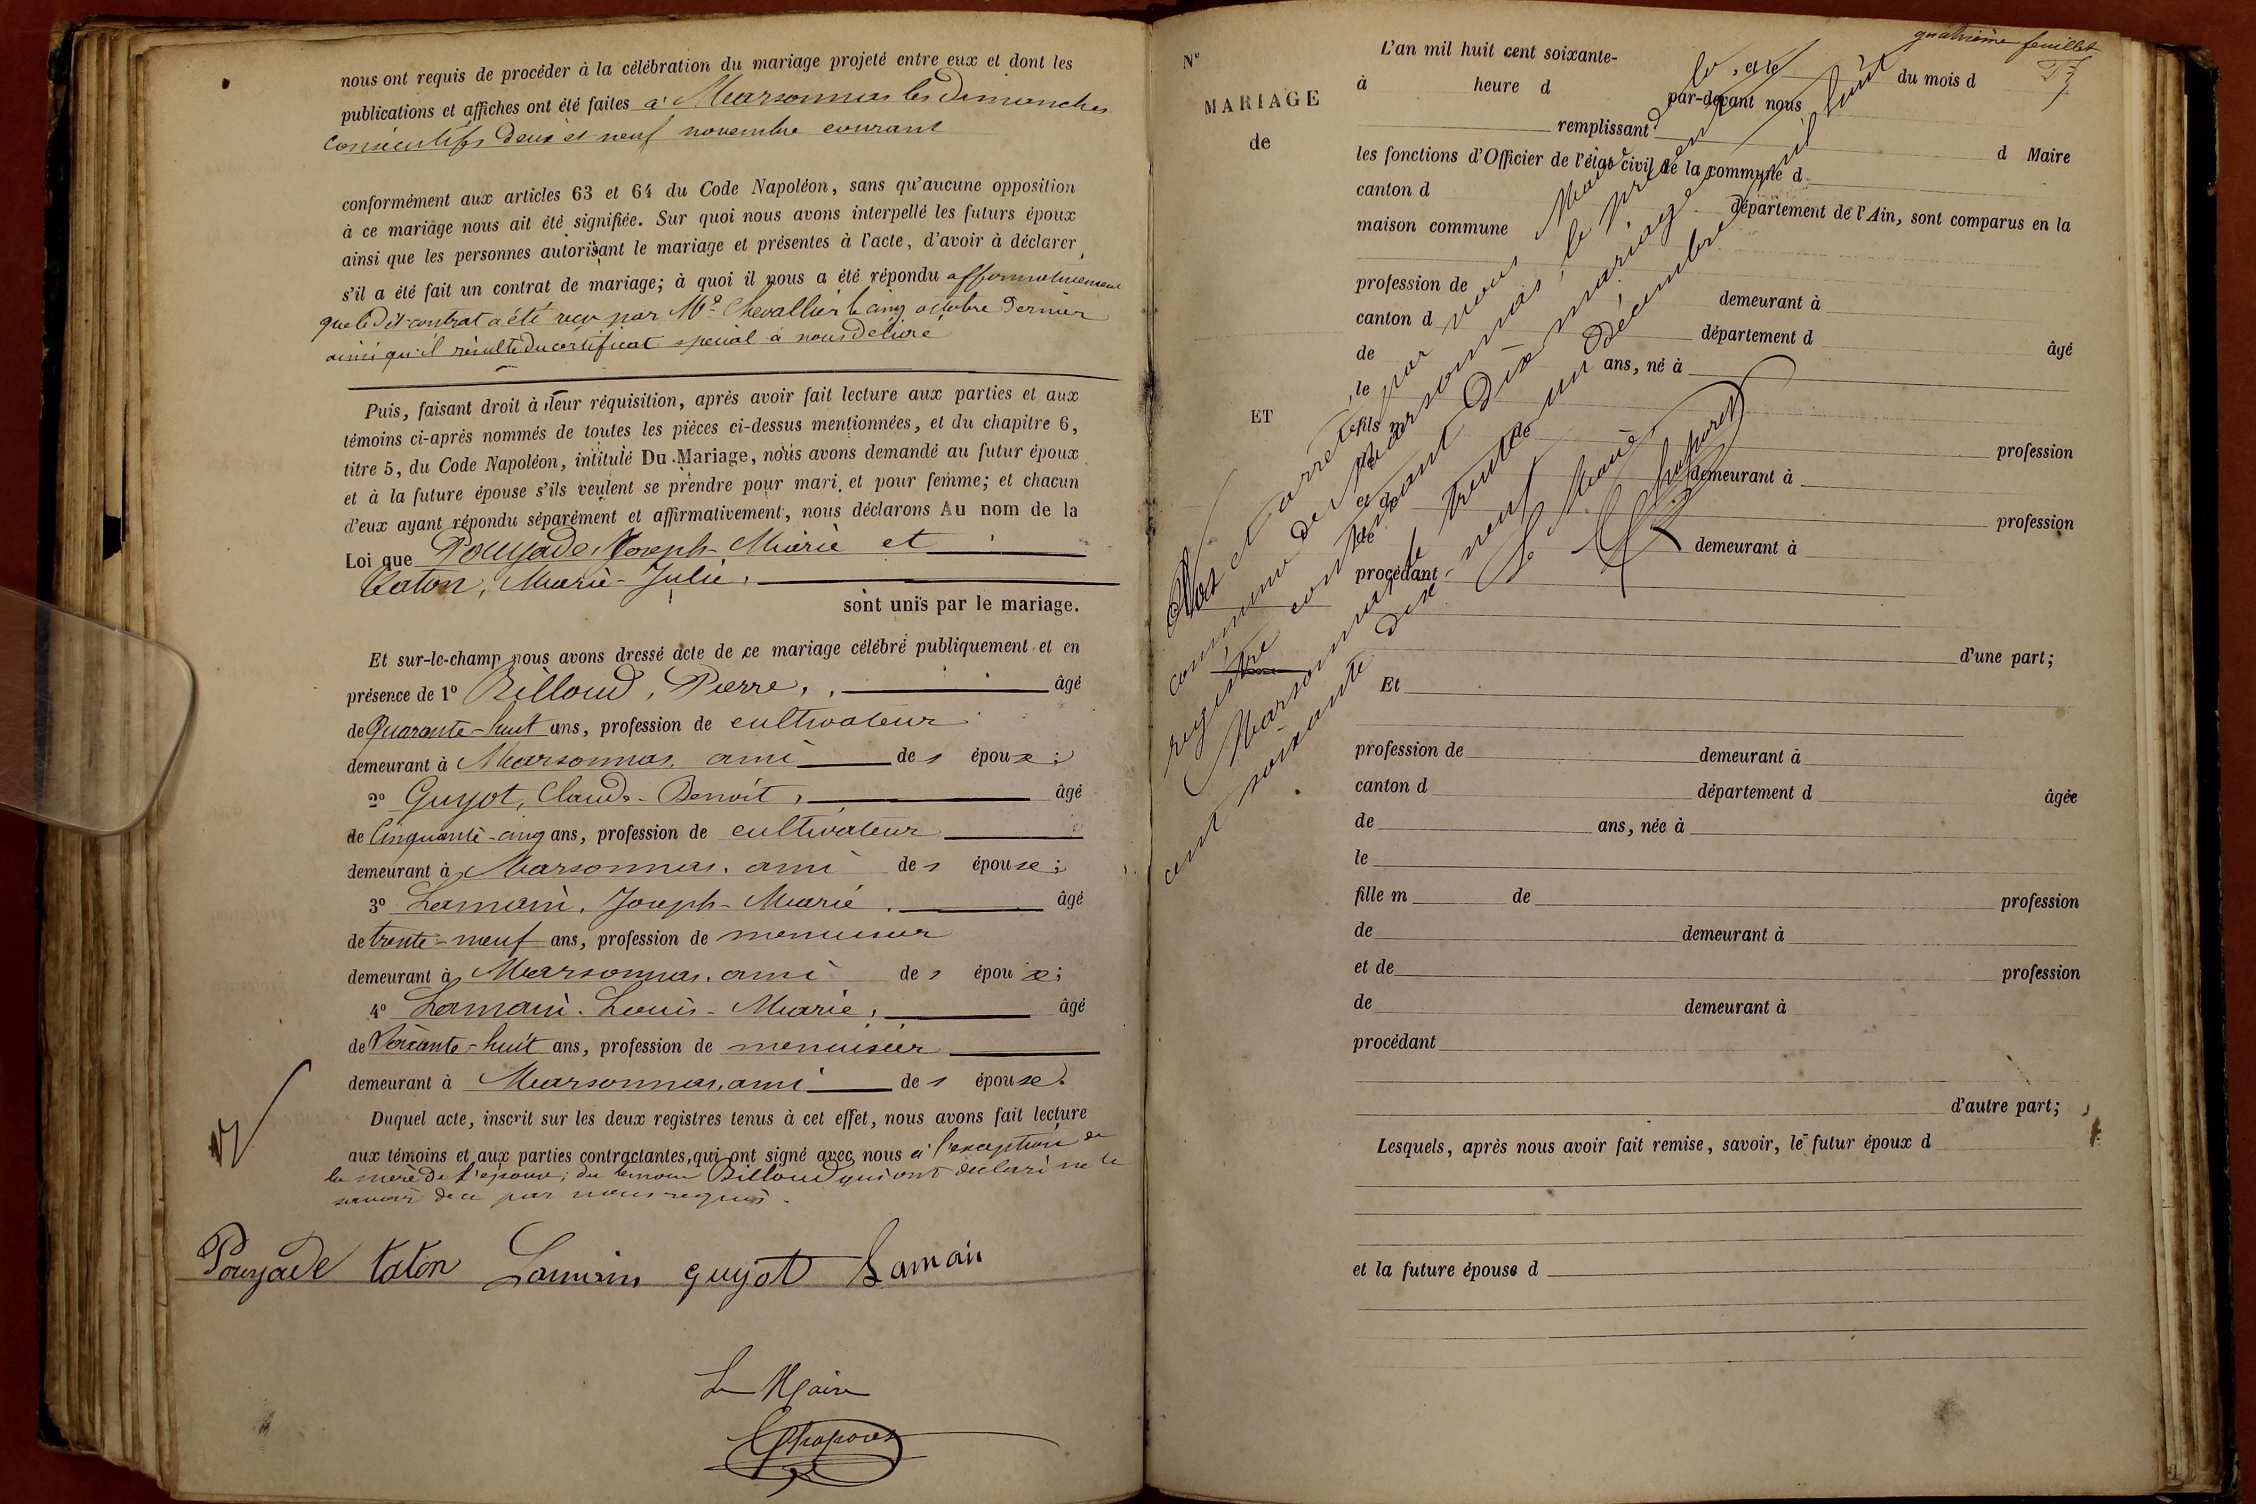 nous ont requis de procéder à la célébration du mariage projeté entre eux et dont les
publications et affiches ont été faites à Marsonnas les dimanches
consécutifs deux et neuf novembre courant
conformément aux articles 63 et 64 du Code Napoléon, sans qu'aucune opposition
à ce mariage nous ait été signifiée. Sur quoi nous avons interpellé les futurs époux
ainsi que les personnes autorisant le mariage et présentes à l'acte, d'avoir à déclarer
s'il a été fait un contrat de mariage; à quoi il nous a été répondu affirmativement
que le dit contrat a été reçu par Me Chevallier le cinq octobre dernier
ainsi qu'il résulte du certificat spécial à nous délivré
Puis, faisant droit à leur réquisition, après avoir fait lecture aux parties et aux
témoins ci-après nommés de toutes les pièces ci-dessus mentionnées, et du chapitre 6,
titre 5, du Code Napoléon, intitulé Du Mariage, nous avons demandé au futur époux
et à la future épouse s'ils veulent se prendre pour mari et pour femme; et chacun
d'eux ayant répondu séparément et affirmativement, nous déclarons Au nom de la
Loi que Pouyade, Joseph-Marie et
Caton, Marie-Julie,
sont unis par le mariage.
Et sur-le-champ nous avons dressé acte de ce mariage célébré publiquement et en
présence de 1° Billoud, Pierre, âgé
de Quarante-huit ans, profession de cultivateur
demeurant à Marsonnas, ami des époux;
2° Guyot, Claude-Benoit, âgé
de Cinquante-cinq ans, profession de cultivateur
demeurant à Marsonnas, ami des époux;
3° Lamain, Joseph-Marie, âgé
de trente-neuf ans, profession de menuisier
demeurant à Marsonnas, ami des époux;
4° Lamain, Louis-Marie, âgé
de Soixante-huit ans, profession de menuisier
demeurant à Marsonnas, ami des époux.
Duquel acte, inscrit sur les deux registres tenus à cet effet, nous avons fait lecture
aux témoins et aux parties contractantes, qui ont signé avec nous à l'exception de
la mère de l'épouse, du témoin Billoud qui ont déclaré ne le
savoir de ce par nous requis.
Pouyade Caton Lamain guyot Lamain
Le Maire
Chaparet
quatrième feuillet
N°
MARIAGE
de
ET
L'an mil huit cent soixante-
à heure d du mois d
par-devant nous
remplissant
d Maire
les fonctions d'Officier de l'état civil de la commune d
canton d
département de l'Ain, sont comparus en la
maison commune
profession de demeurant à
canton d département d
de âgé
ans, né à
le
fils m de
profession
demeurant à
et de
profession
de demeurant à
procédant
d'une part;
Et
profession de demeurant à
canton d département d
âgée
de ans, née à
le
fille m de profession
de demeurant à
et de profession
de demeurant à
procédant
d'autre part;
Lesquels, après nous avoir fait remise, savoir, le futur époux d
et la future épouse d
Clos et arrêté par nous Maire de la
commune de Marsonnas, le présent
registre contenant dix mariages
Marsonnas, le trente un décembre mil huit
cent soixante dix neuf
Le Maire
Chaparet